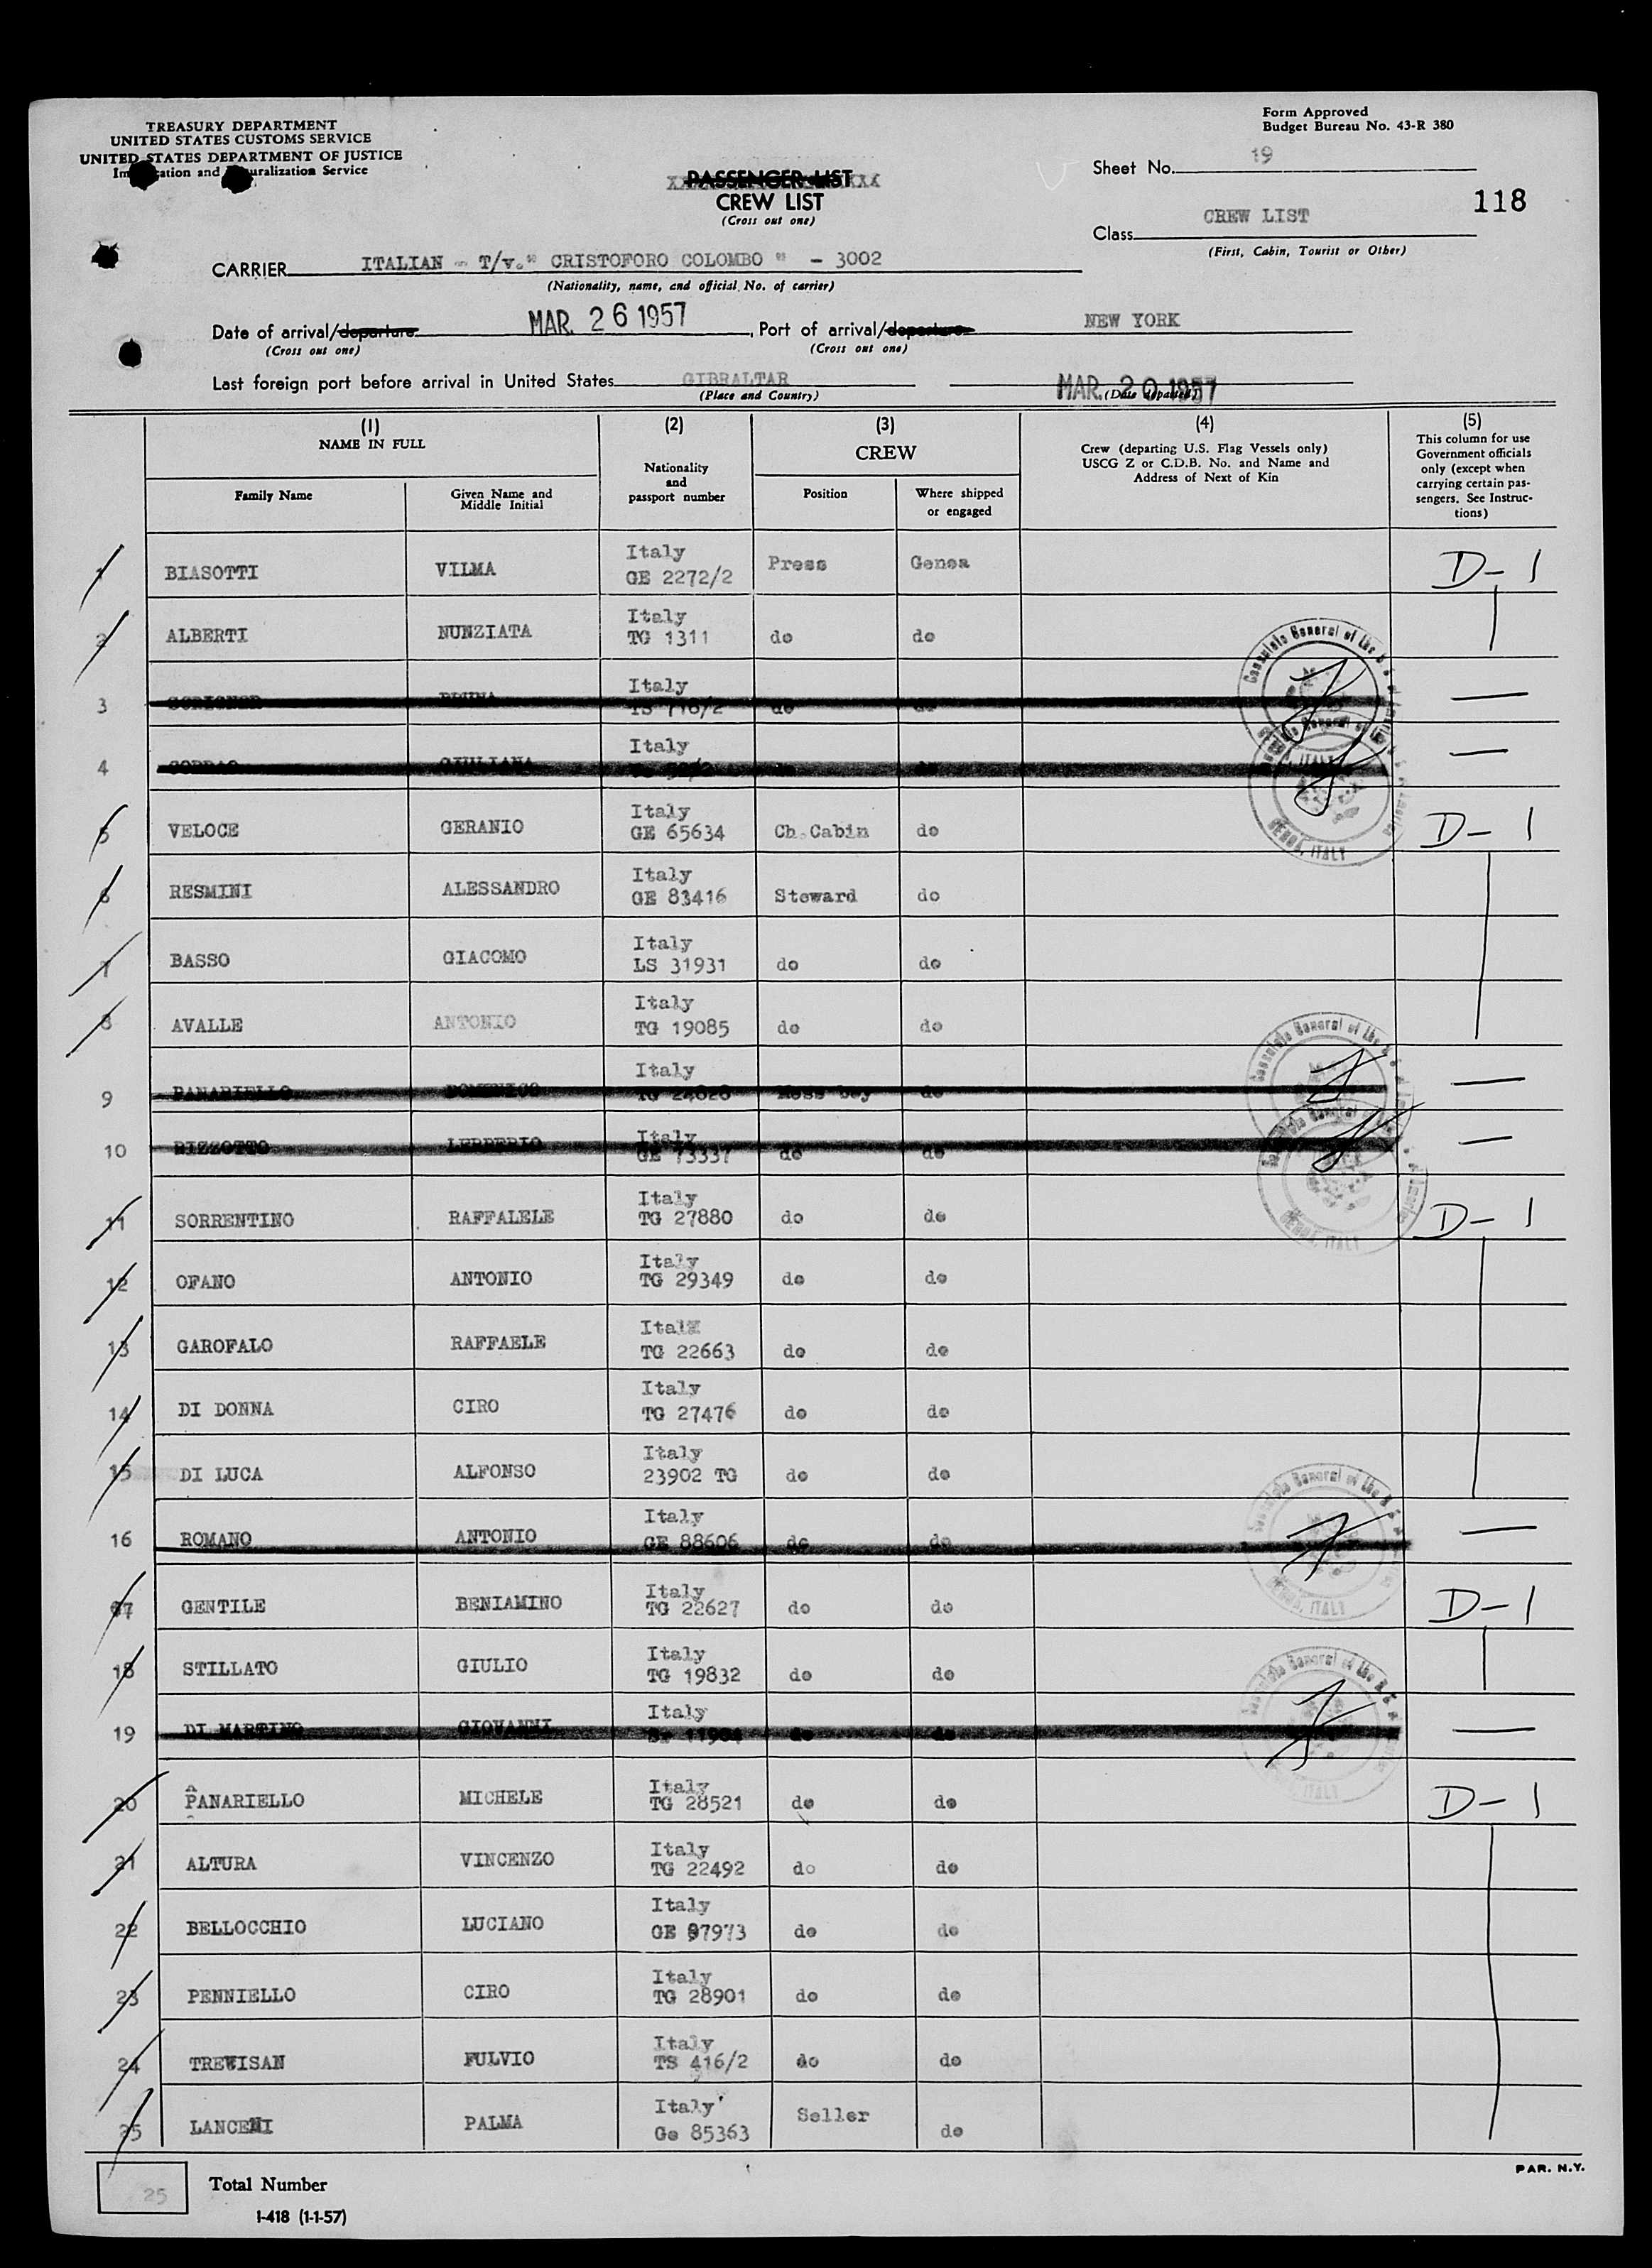 TREASURY DEPARTMENT
UNITED STATES CUSTOMS SERVICE
UNITED STATES DEPARTMENT OF JUSTICE
Im ation and uralization Service
Form Approved
Budget Bureau No. 43-R 380
Sheet No. 19
118
PASSENGER LIST
CREW LIST
(Cross out one)
Class CREW LIST
(First, Cabin, Tourist or Other)
CARRIER ITALIAN - T/v." CRISTOFORO COLOMBO " - 3002
(Nationality, name, and official No. of carrier)
Date of arrival/departure MAR. 26 1957, Port of arrival/departure NEW YORK
(Cross out one) (Cross out one)
Last foreign port before arrival in United States GIBRALTAR MAR. 20 1957
(Place and Country) (Date departed)
(1) NAME IN FULL
Family Name
Given Name and Middle Initial
(2)
Nationality and passport number
(3)
CREW
Position
Where shipped or engaged
(4)
Crew (departing U.S. Flag Vessels only)
USCG Z or C.D.B. No. and Name and
Address of Next of Kin
(5)
This column for use
Government officials
only (except when
carrying certain pas-
sengers. See Instruc-
tions)
1 BIASOTTI VILMA Italy GE 2272/2 Press Genoa D-1
2 ALBERTI NUNZIATA Italy TG 1311 do do
3 Italy do do
4 GIULIANA Italy
5 VELOCE GERANIO Italy GE 65634 Ch.Cabin do D-1
6 RESMINI ALESSANDRO Italy GE 83416 Steward do
7 BASSO GIACOMO Italy LS 31931 do do
8 AVALLE ANTONIO Italy TG 19085 do do
9 PANARIELLO DOMENICO Italy Mess boy do
10 RIZZOTTO Italy GE 73337 do do
11 SORRENTINO RAFFALELE Italy TG 27880 do do D-1
12 OFANO ANTONIO Italy TG 29349 do do
13 GAROFALO RAFFAELE Ital TG 22663 do do
14 DI DONNA CIRO Italy TG 27476 do do
15 DI LUCA ALFONSO Italy 23902 TG do do
16 ROMANO ANTONIO Italy GE 88606 do do
17 GENTILE BENIAMINO Italy TG 22627 do do D-1
18 STILLATO GIULIO Italy TG 19832 do do
19 DI MARTINO GIOVANNI Italy do do
20 PANARIELLO MICHELE Italy TG 28521 do do D-1
21 ALTURA VINCENZO Italy TG 22492 do do
22 BELLOCCHIO LUCIANO Italy GE 97973 do do
23 PENNIELLO CIRO Italy TG 28901 do do
24 TREVISAN FULVIO Italy TS 416/2 do do
25 LANCENI PALMA Italy Ge 85363 Seller do
Consulate General of the U S of America
GENOA, ITALY
25 Total Number
I-418 (1-1-57)
PAR. N.Y.